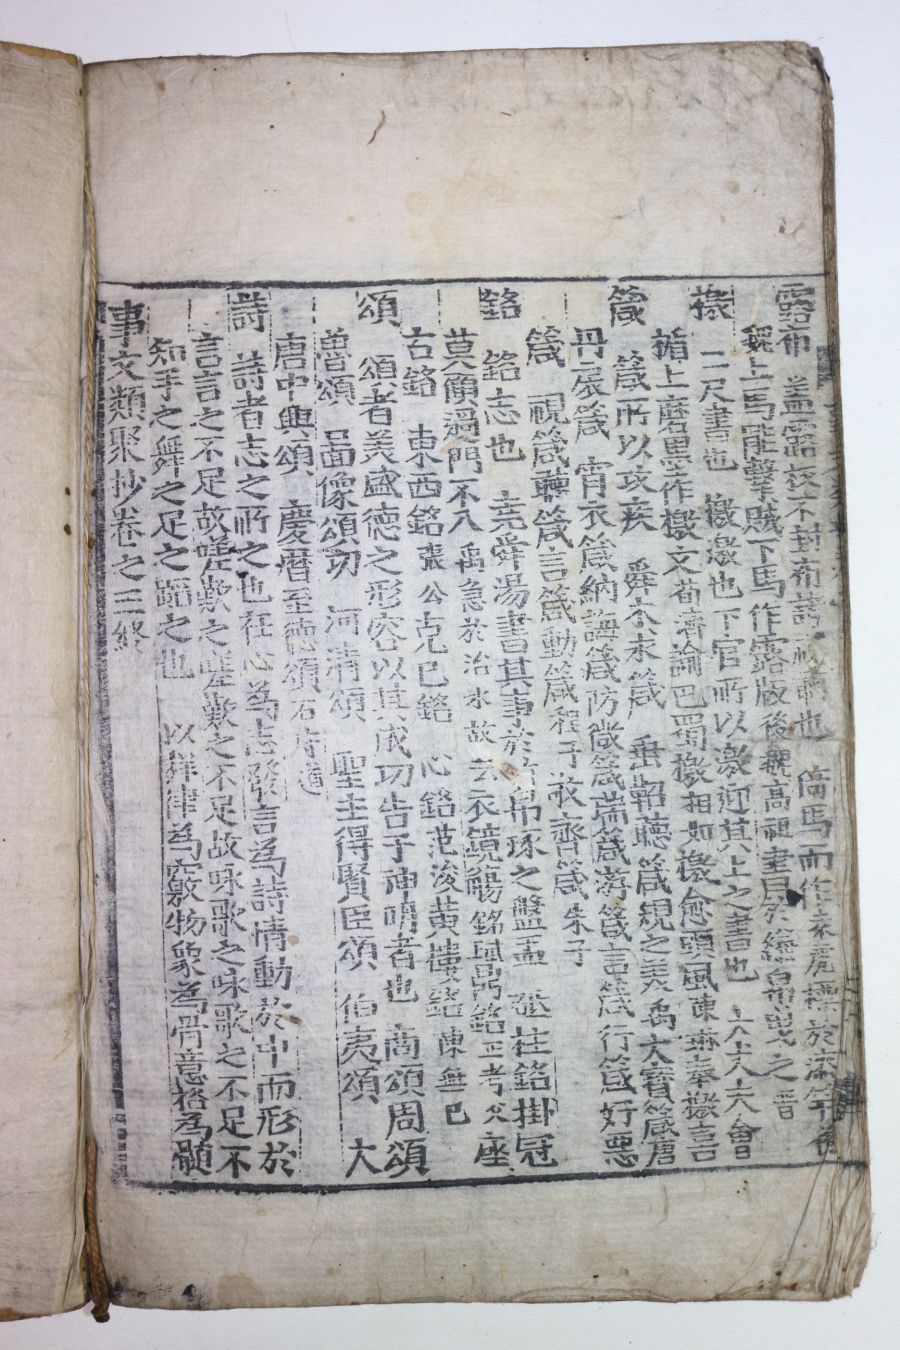 露布 蓋露板不封布諸視聽也 倚馬而作
魏上馬能擊賊下馬作露版後魏高祖書曰 之晉
檄 二尺書也 檄激也下官所以激迎其上之書也 士大夫會
楯上磨墨作檄文荀濟諭巴蜀檄相如檄愈頭風陳琳奉檄言
箴 箴所以攻疾 舜 箴 垂韜聽箴規之美禹大寶箴唐
丹扆箴 宵衣箴納誨箴防微箴端箴游箴言箴行箴好惡
箴 視箴聽箴言箴動箴程子敬齊箴朱子
銘 銘志也 堯舜湯書其事於 琢之盤盂 砥柱銘掛冠
莫顧過門不入禹急於治水故云衣鏡觴銘 銘正考父座
右銘 東西銘張公克己銘 心銘范浚黃樓銘陳無已
頌 頌者美盛德之形容以其成功告于神明者也 商頌周頌
魯頌 圖像頌功 河清頌 聖主得賢臣頌 伯夷頌 大
唐中興頌 慶曆至德頌石守道
詩 詩者志之所之也在心為志發言為詩情動於中而形於
言言之不足故嗟歎之嗟歎之不足故咏歌之咏歌之不足不
知手之舞之足之蹈之也 以 律為竅物象為骨意格為髓
事文類聚抄卷之三終